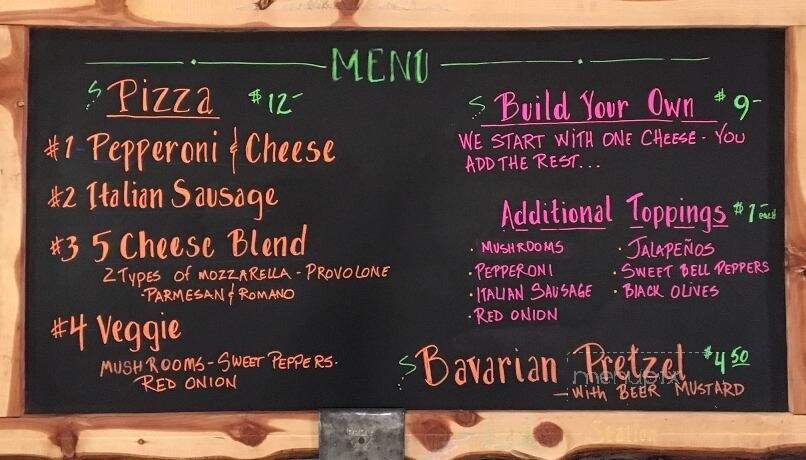 MENU
Pizza $12-
#1 Pepperoni & Cheese
#2 Italian Sausage
#3 5 Cheese Blend
2 Types of Mozzarella - Provolone
·Parmesan & Romano
#4 Veggie
Mushrooms - Sweet Peppers·
Red Onion
Build Your Own $9-
We start with one cheese - you
add the rest...
Additional Toppings $1- each
· Mushrooms
· Pepperoni
· Italian Sausage
· Red Onion
· Jalapeños
· Sweet Bell Peppers
· Black Olives
Bavarian Pretzel $4 50
— with Beer Mustard
menupix